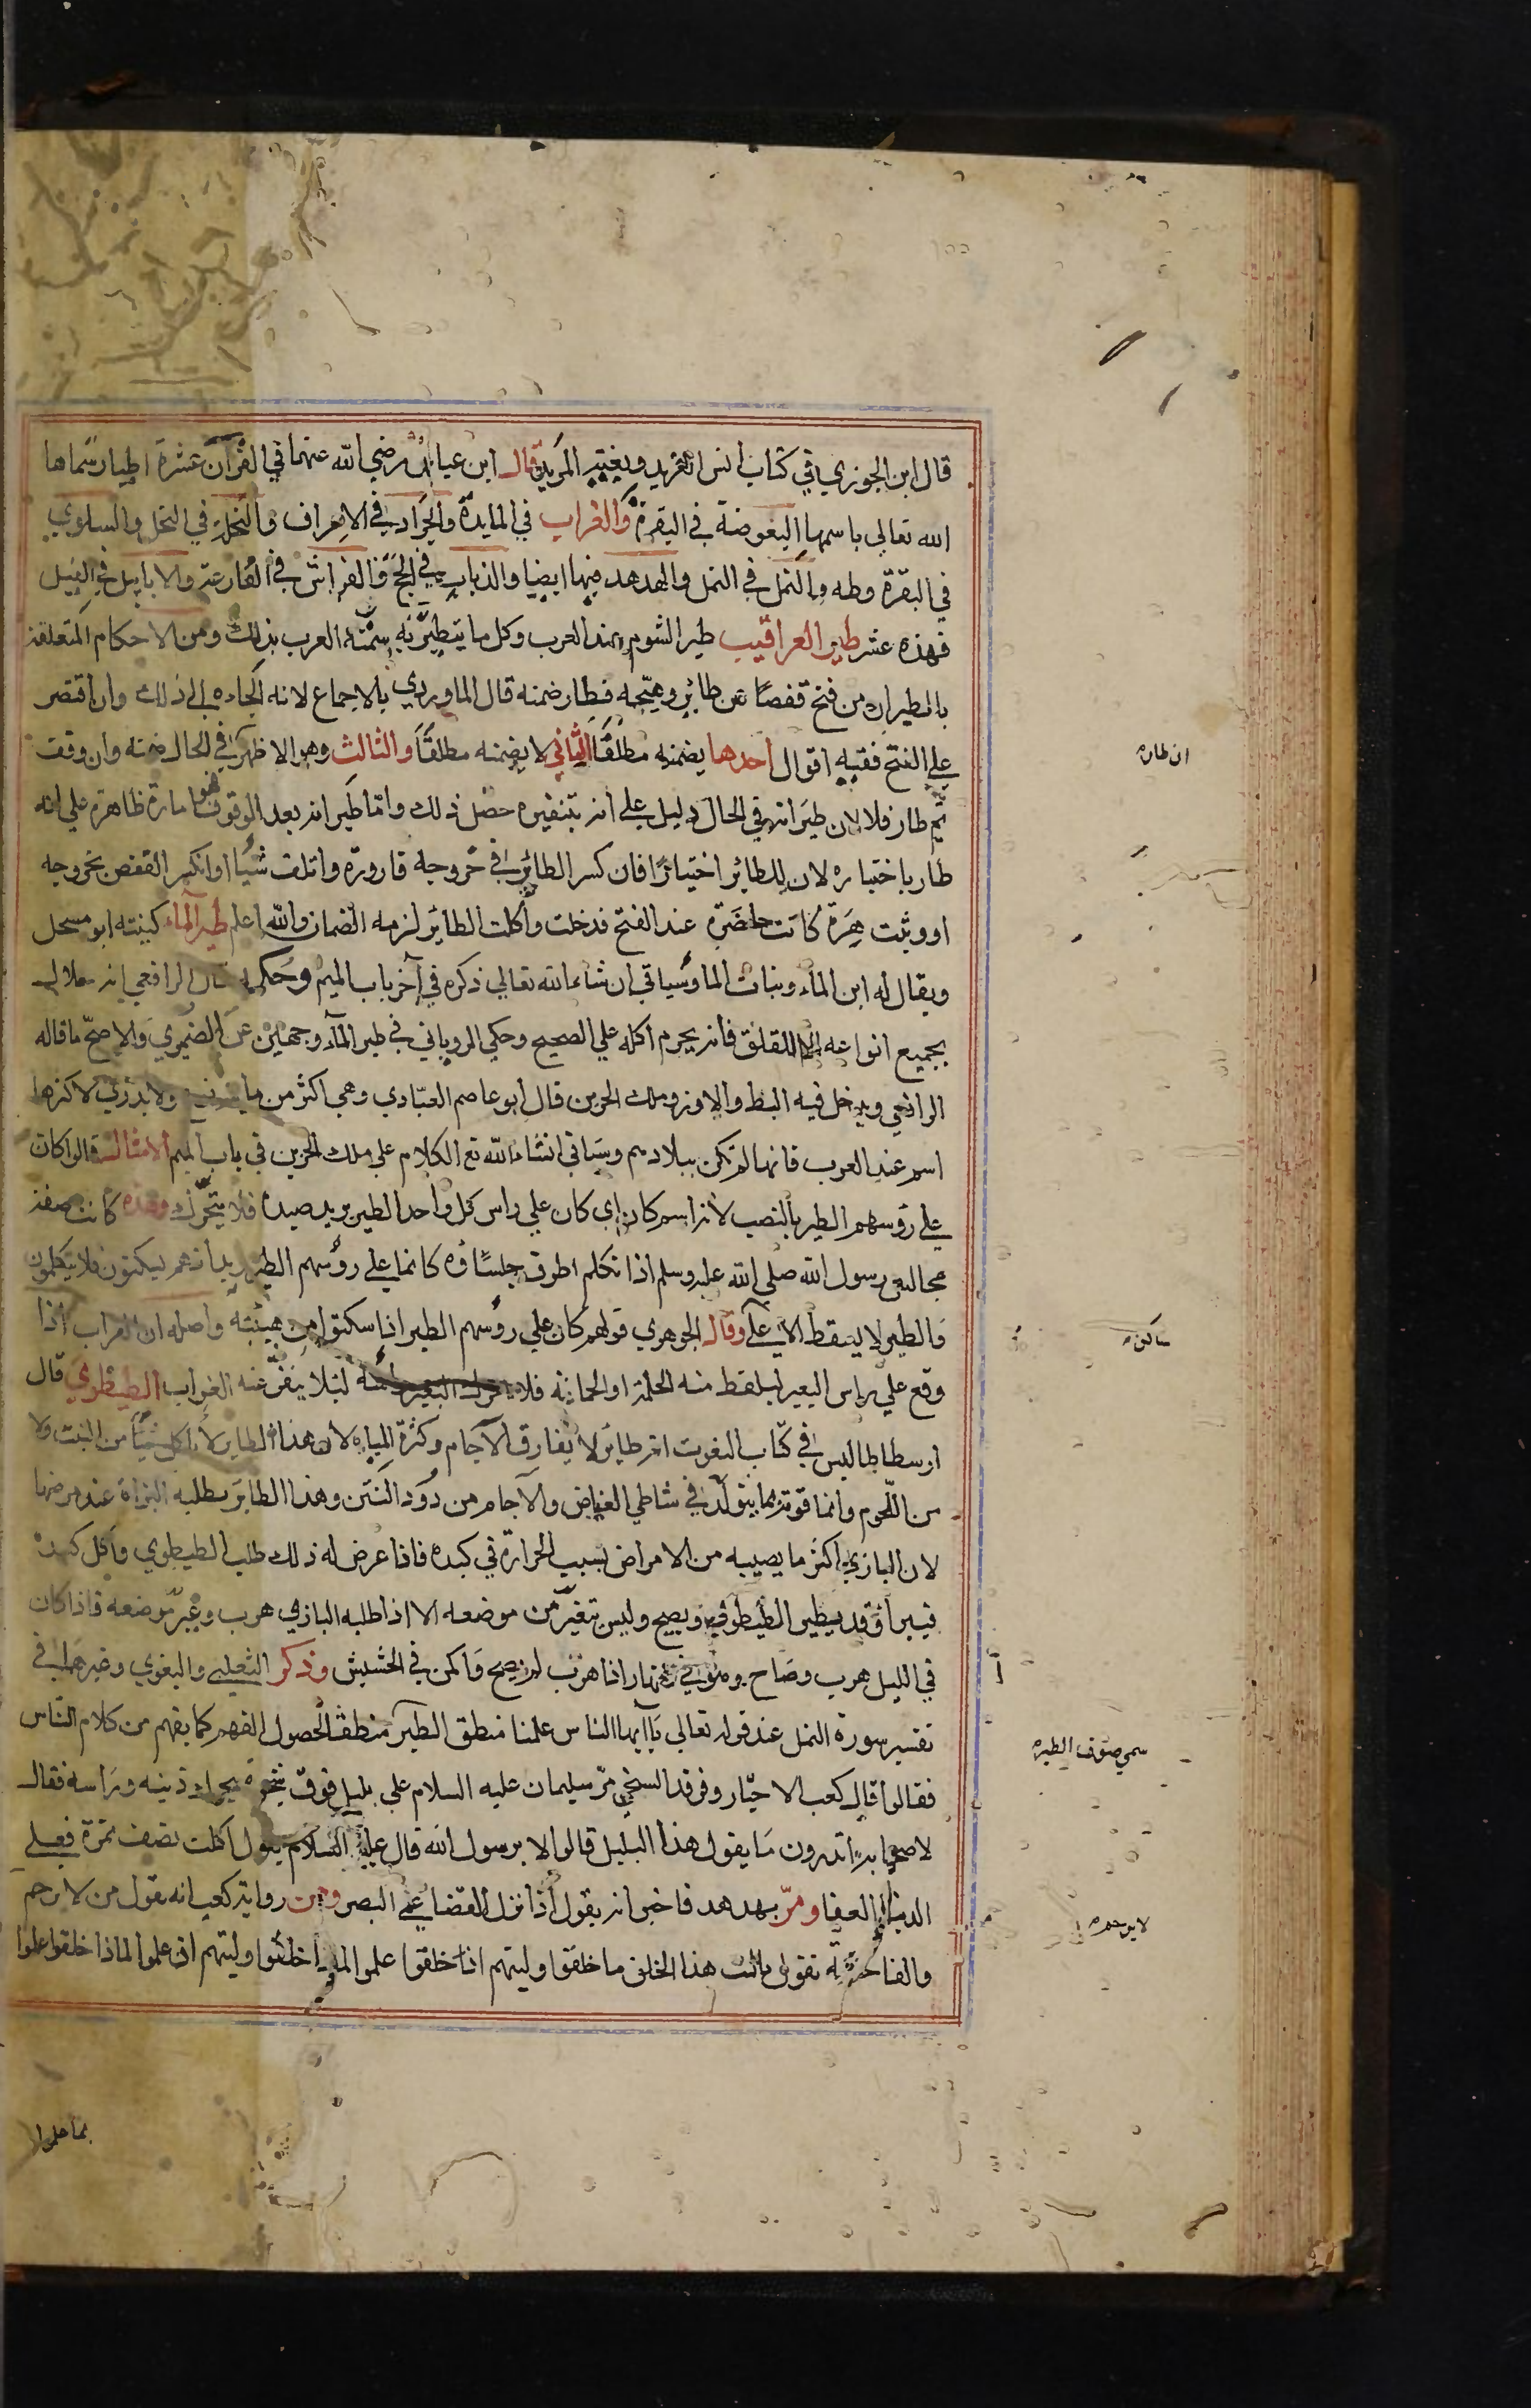 قال ابن الجوزي في كتاب انس الفريد وبغية المريد قال ابن عباس رضي الله عنهما في القرآن عشرة اطيار سماها
الله تعالى باسمها البعوضة في البقرة والغراب في المايدة والجراد في الاعراف والنحلة في النحل والسلوي
في البقرة وطه والنمل في النمل والهدهد فيها ايضا والذباب في الحج والفراش في القارعة والابابيل في الفيل
فهذه عشر طير العراقيب طير الشوم عند العرب وكل ما يتطير به سمته العرب بذلك ومن الاحكام المتعلقة
بالطيران من فتح قفصا عن طائر وهيجه فطار ضمنه قال الماوردي بالاجماع لانه الجاه الي ذلك وان اقتصر
علي الفتح ففيه اقوال احدها يضمنه مطلقا الثاني لا يضمنه مطلقا والثالث وهو الاظهر في الحال ضمنه وان وقف
ان طار
ثم طار فلا لان طيرانه في الحال دليل علي انه بتنفيره حصل ذلك واما طيرانه بعد الوقوف فهو امارة ظاهرة علي انه
طار باختياره لان للطائر اختيارا فان كسر الطائر في خروجه قارورة واتلف شيا او انكسر القفص بخروجه
او وثبت هرة كانت حاضرة عند الفتح فدخلت واكلت الطائر لزمه الضمان والله اعلم طير الماء كنيته ابو مسحل
ويقال له ابن الماء وبنات الما وسياتي ان شاء الله تعالي ذكره في آخر باب الميم وحكمه قال الرافعي انه حلال
بجميع انواعه الا اللقلق فانه يحرم اكله علي الصحيح وحكي الروياني في طير الماء وجهين عن الضيمري والاصح ما قاله
الرافعي ويدخل فيه البط والاوز وملك الحزين قال ابو عاصم العبادي وهي اكثر من ماية نوع ولا يدري لاكثرها
اسم عند العرب فانها لم تكن ببلادهم وسياتي انشاء الله تع الكلام علي ملك الحزين في باب الميم الامثال قالوا كان
علي رؤسهم الطير بالنصب لانه اسم كان اي كان علي راس كل واحد الطير يريد صيده فلا يتحرك وهذه كانت صفة
مجالس رسول الله صلي الله عليه وسلم اذا تكلم اطرق جلساؤه كانما علي رؤسهم الطير يريد انهم يسكتون فلا يتكلمون
والطير لا يسقط الا علي وقال الجوهري قولهم كان علي رؤسهم الطير اذا سكتوا من هيبته واصله ان الغراب اذا
ساكن
وقع علي راس البعير ليلقط منه الحلمة او الحمانة فلا يحرك البعير راسه لئلا ينفر عنه الغراب الطيطوي قال
ارسطاطاليس في كتاب النعوت انه طائر لا يفارق الآجام وكثرة المياه لان هذا الطاير لا ياكل شيئا من النبت ولا
من اللحوم وانما قوته مما يتولد في شاطي الغياض والآجام من دود النتن وهذا الطاير يطلبه البزاة عند مرضها
لان البازي اكثر ما يصيبه من الامراض بسبب الحرارة في كبده فاذا عرض له ذلك طلب الطيطوي واكل كبده
فيبرأ وقد يطير الطيطوي ويصيح وليس يتغير من موضعه الا اذا طلبه البازي هرب وغير موضعه فاذا كان
في الليل هرب وصاح وهو في النهار اذا هرب لم يصح واكمن في الحشيش وذكر الثعلبي والبغوي وغيرهما في
تفسير سورة النمل عند قوله تعالي يا ايها الناس علمنا منطق الطير منطقا لحصول الفهم كما يفهم من كلام الناس
سمي صوت الطير
فقالوا قال كعب الاحبار وفرقد السنجي مر سليمان عليه السلام علي بلبل فوق شجرة يحرك ذنبه وراسه فقال
لاصحابه اتدرون ما يقول هذا البلبل قالوا لا يرسول الله قال عليه السلام يقول اكلت نصف تمرة فعلي
الدنيا العفا ومر بهدهد فاخبر انه يقول اذا نزل القضا عمي البصر وفي رواية كعب انه يقول من لا يرحم
لا يرحم
والفاختة تقول ياليت هذا الخلق ما خلقوا وليتهم اذا خلقوا علموا لماذا خلقوا وليتهم اذ علموا لماذا خلقوا علموا
بما علموا